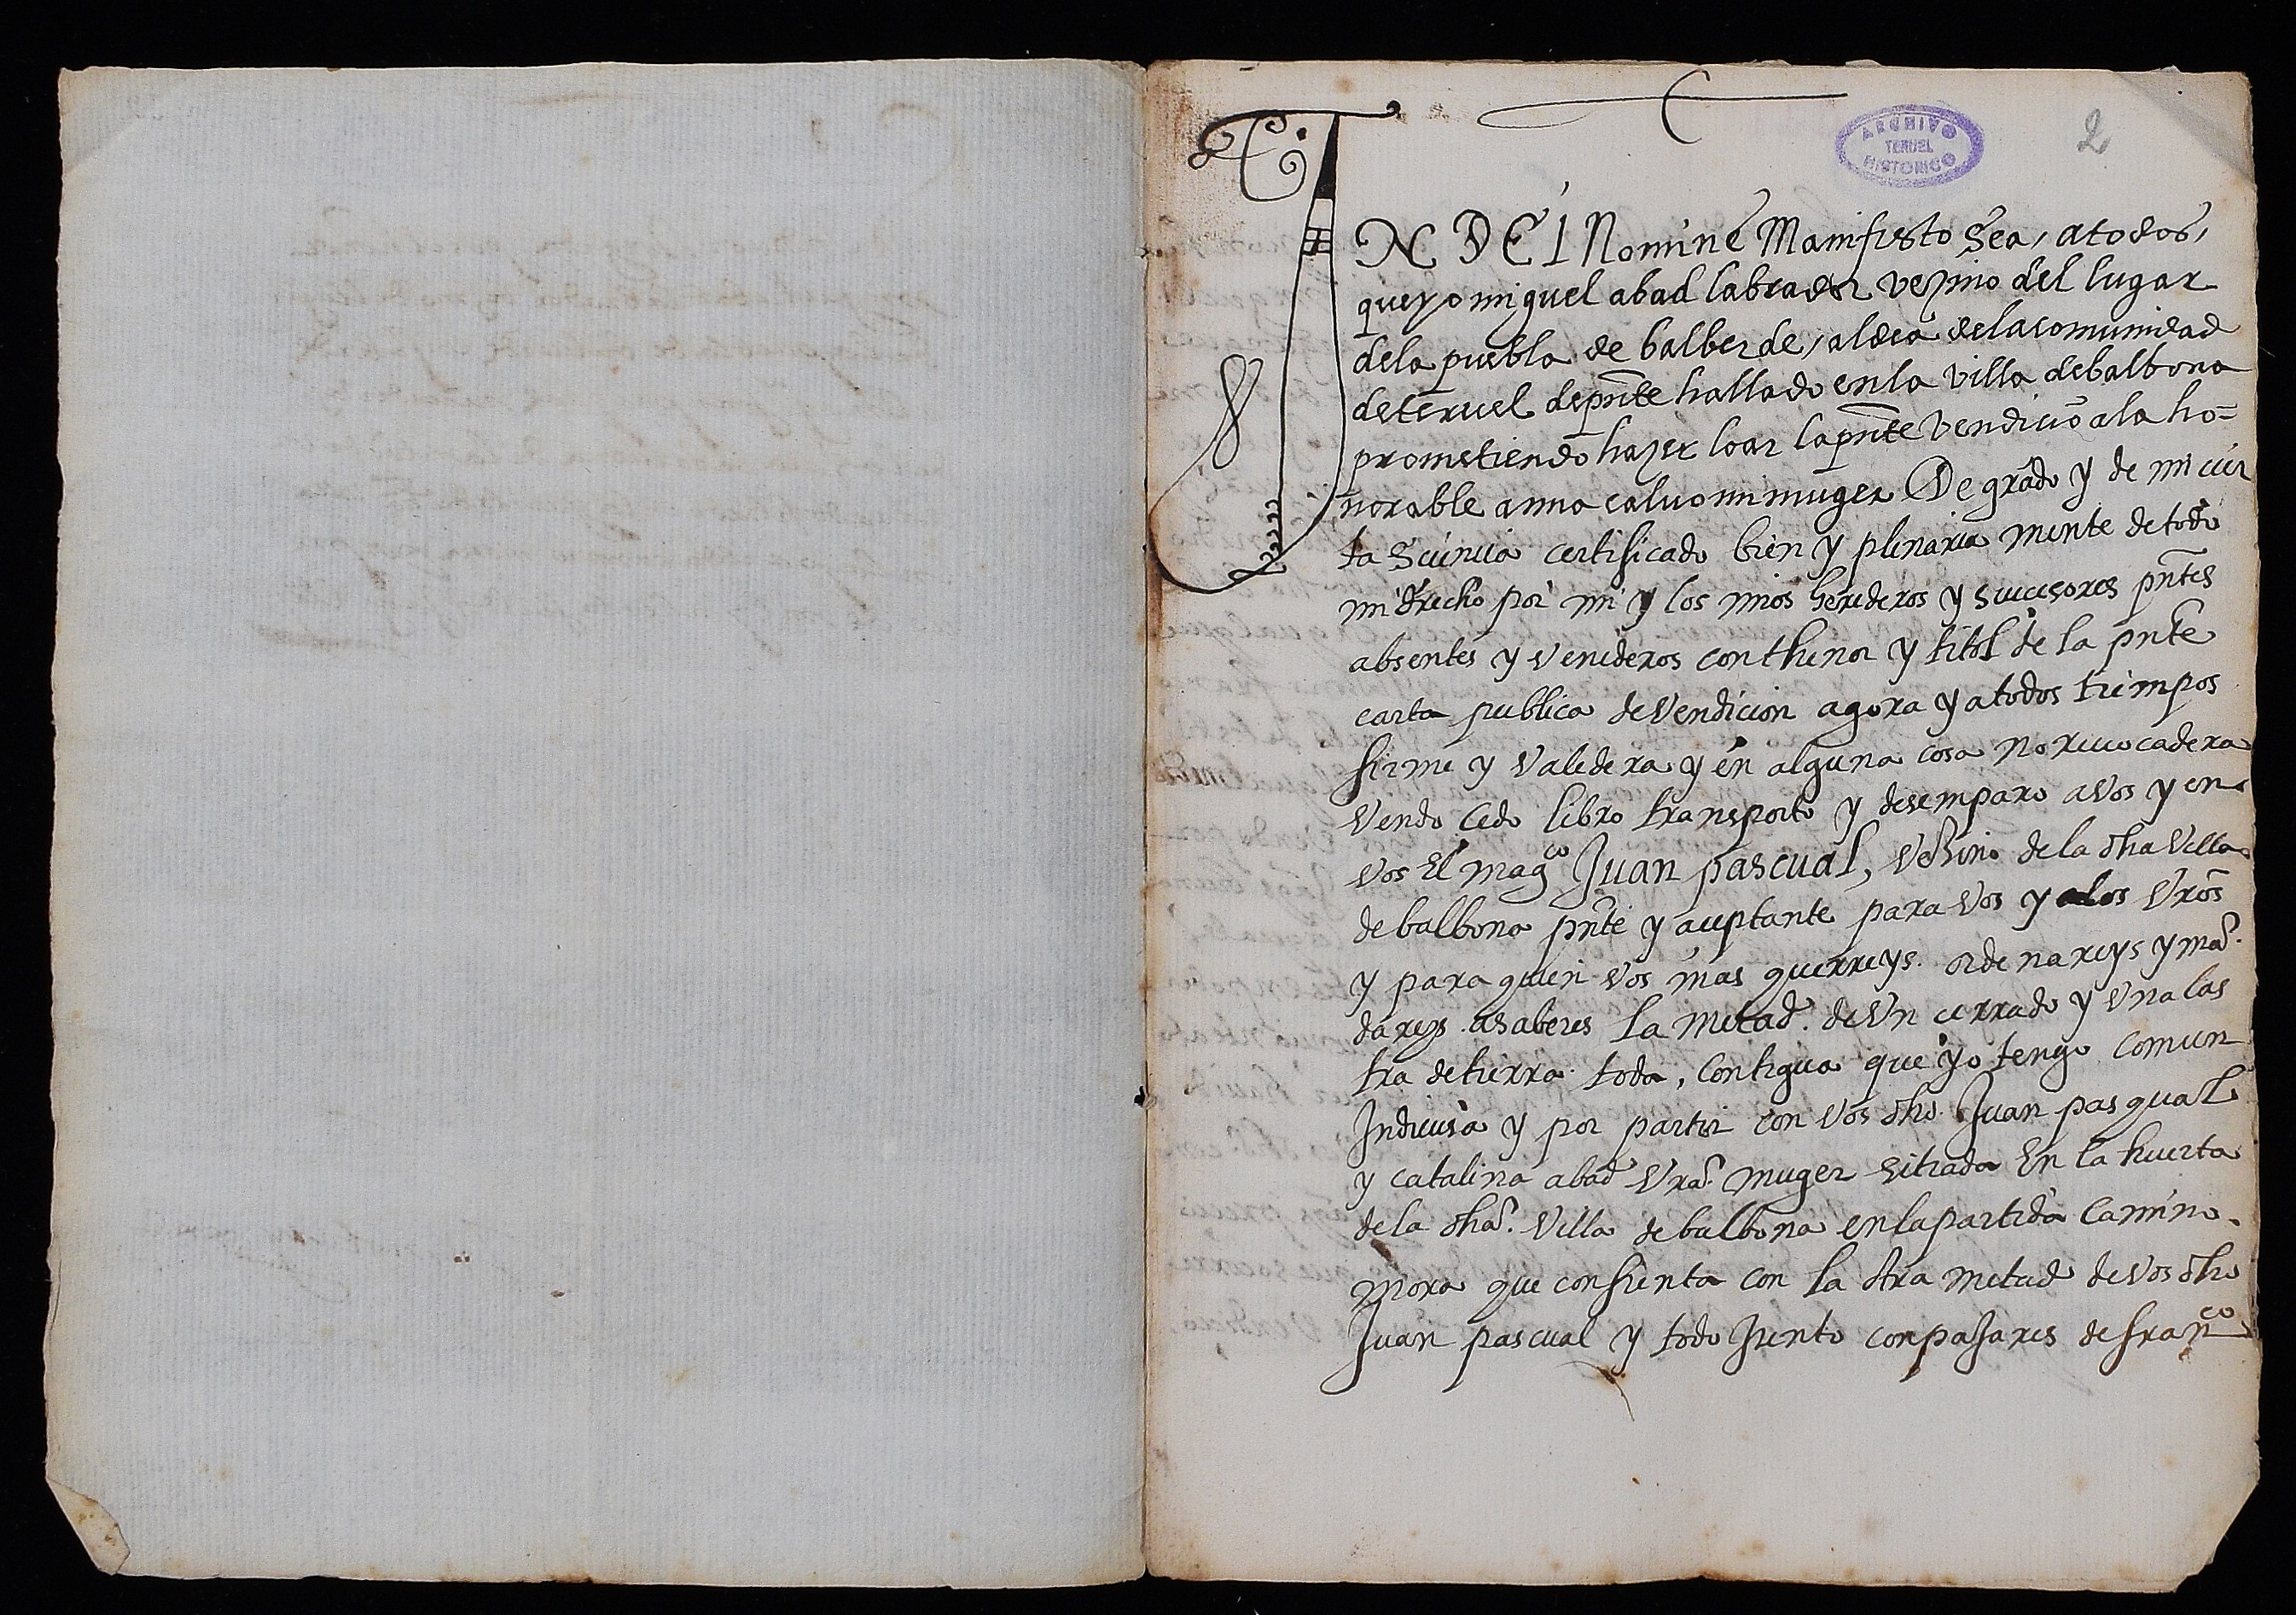 ARCHIVO
TERUEL
HISTORICO
2
IN DEI Nomine Manifiesto Sea, atodos,
queyo miguel abad labrador vezino del lugar
dela puebla de balberde, aldea delacomunidad
deteruel depnte hallado enla villa debalbona
prometiendo hazer loar lapnte vendicio ala ho=
norable anna caluo mi muger De grado y de mi cier
ta Sciencia certificado bien y plenaria mente de todo
mi drecho por mi y los mios herederos y sucesores pntes
absentes y venideros con thenor y titol de la pnte
carta publica de Vendicion agora y atodos tiempos
firme y Valedera y en alguna cosa no reuocadera
Vendo Cedo libro transporto y desemparo avos y en
vos El magco Juan pascual, vezino de la dha Villa
de balbona pnte y aceptante para vos y a los Vros
y para quien vos mas querreys. ordenareys y man
dareys. asaberes la metad. de Vn cerrado y Vna las
tra de tierra. toda, Contigua que yo tengo Comun
Indiuisa y por partir con vos dho. Juan pasqual
y catalina abad Vra. muger sitiada En la huerta
de la dha. Villa de balbona en la partida Camino.
mora que confrenta con la otra metad de vos dho
Juan pascual y todo Junto con pajares de franco